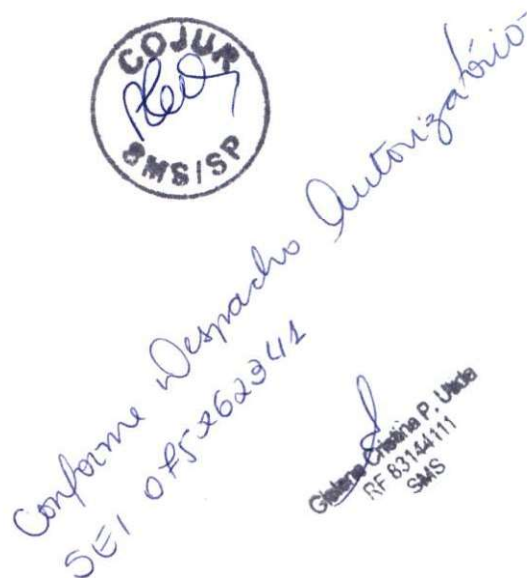 COJUR
SMS/SP
Conforme Despacho Autorizatório
SEI 075262341
Cristina P.
RF 83144111
SMS